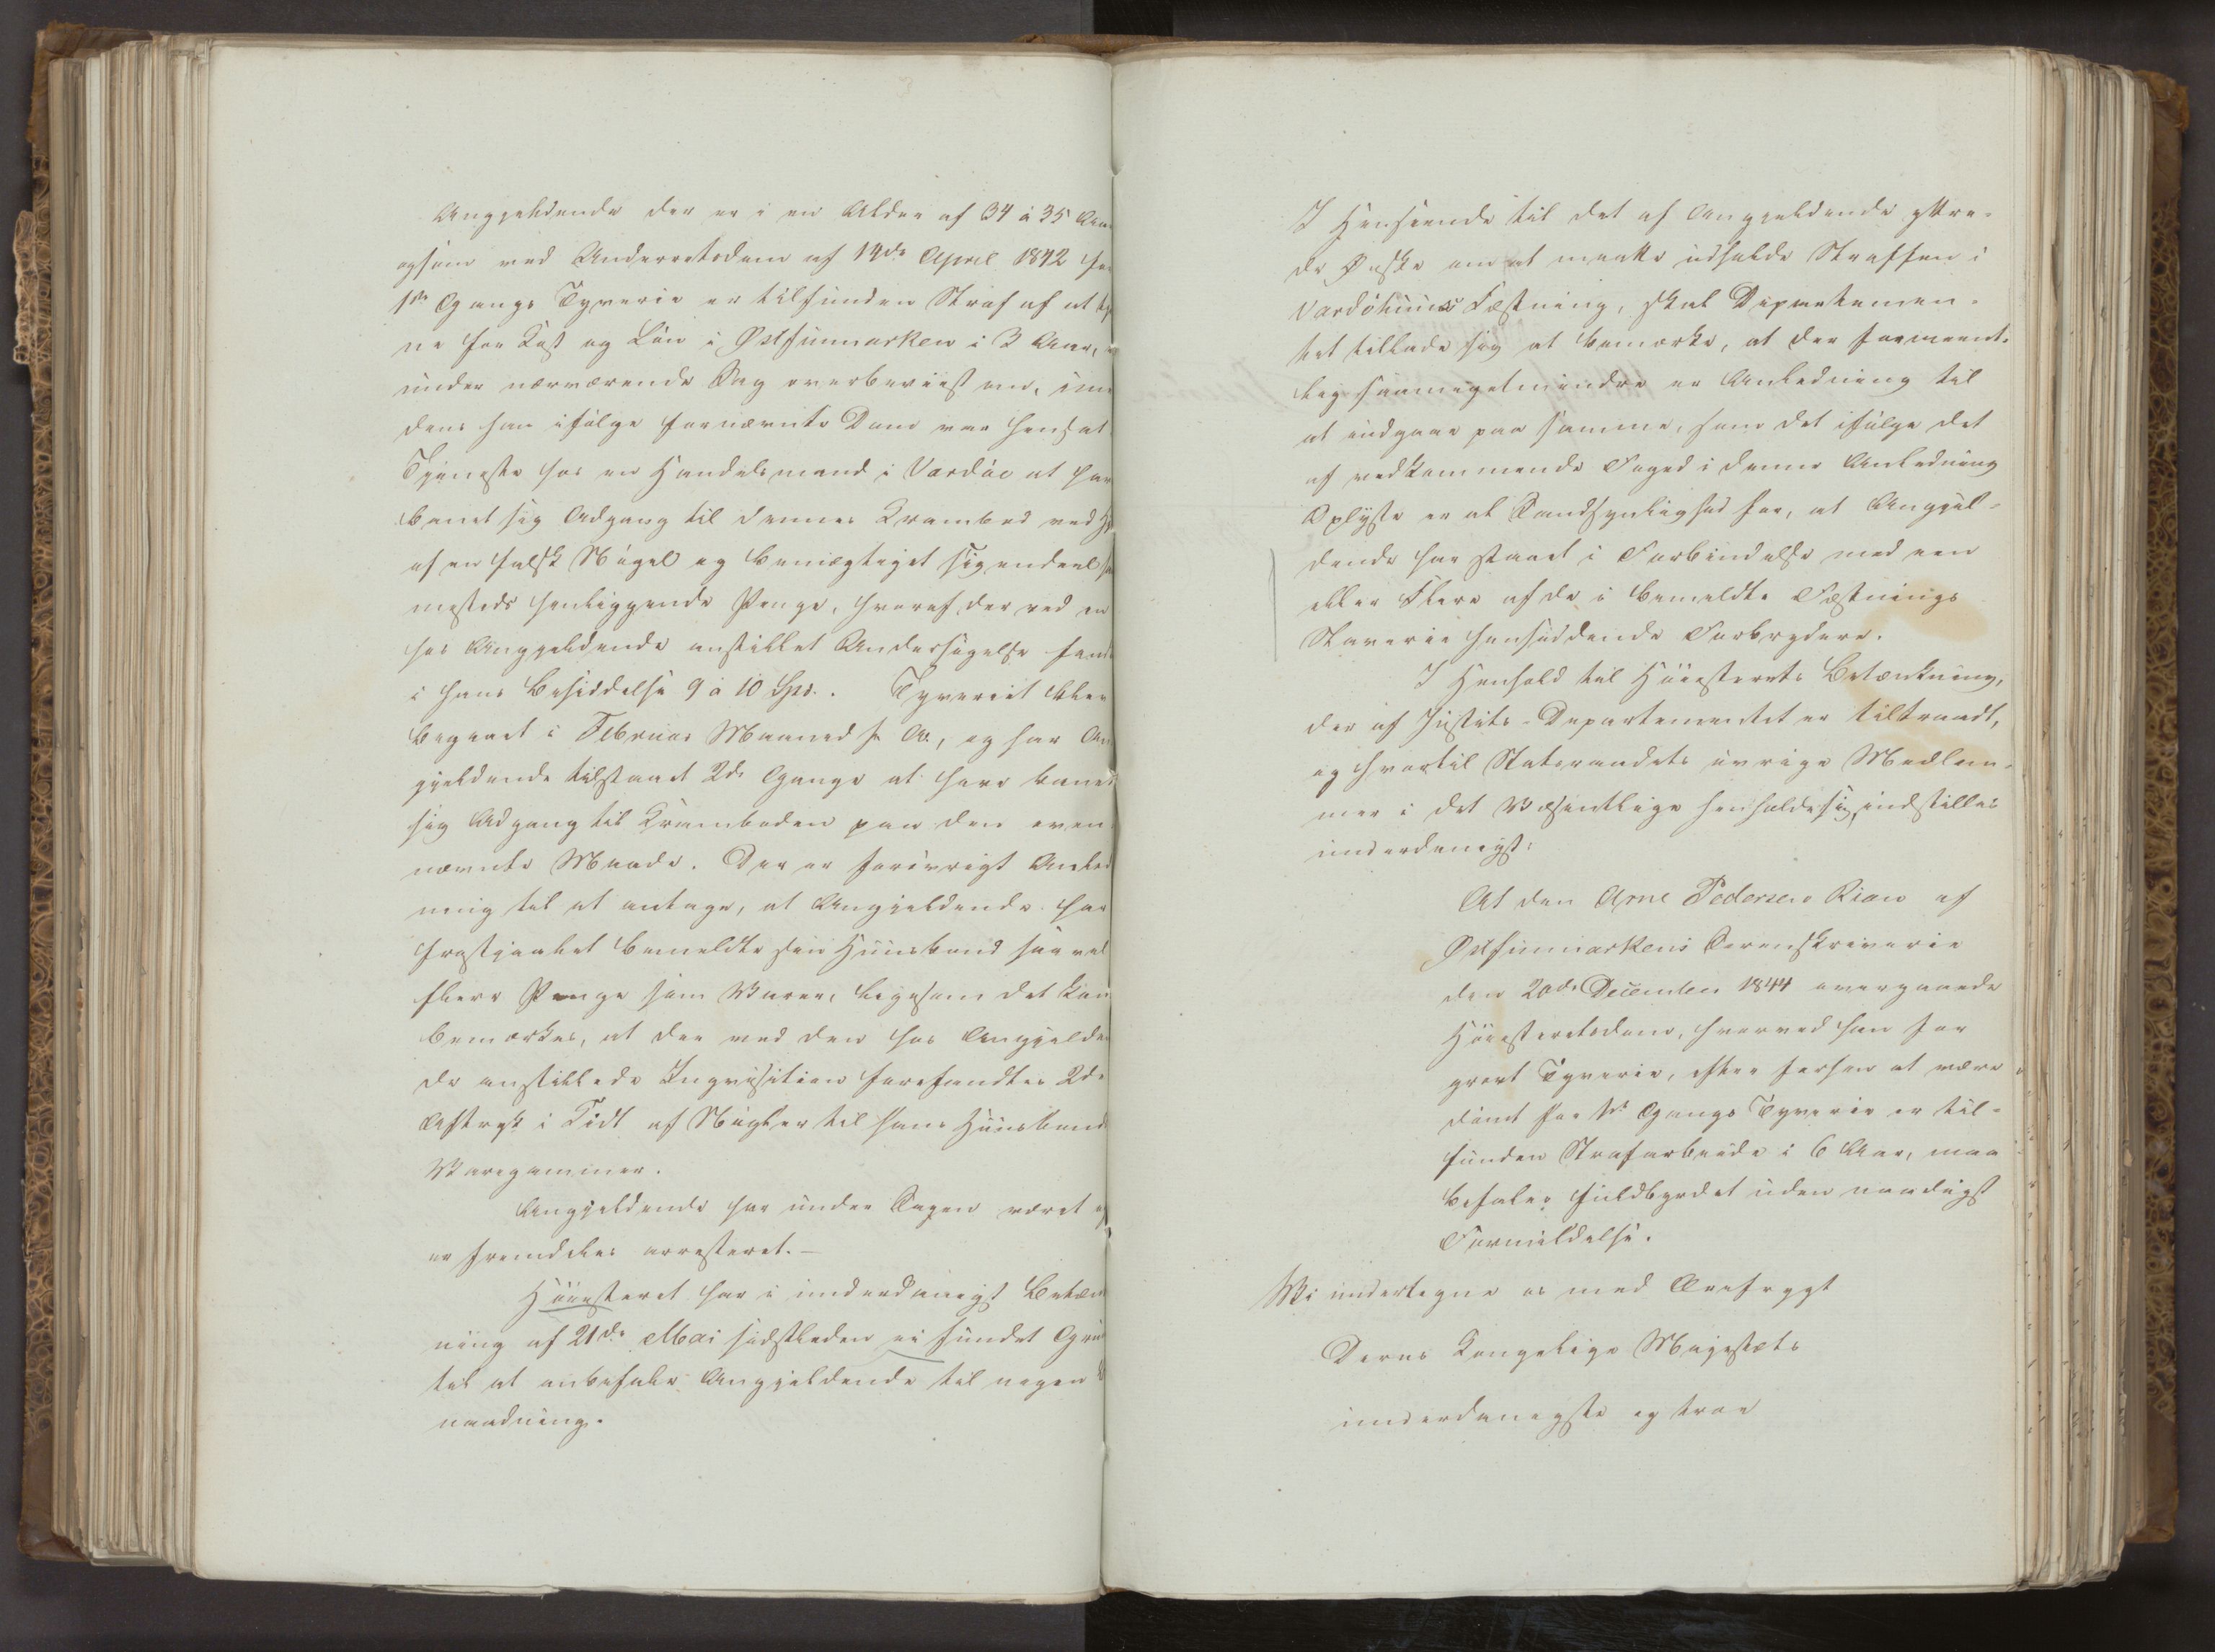 Angjeldende der er i en Alder af 34 à 35 Aar
ogsom ved Underretsdom af 14de April 1842 for
1ste Gangs Tyverie er tilfunden Straf af at tje
ne for Kost og Løn i Østfinmarken i 3 Aar, er
under nærværende Sag overbeviist om, imi
dens han ifølge fornævnte Dom var hensat i
Tjeneste hos en Handelsmand i Vardöe at have
banet sig Adgang til dennes Krambod ved Hj
af en falsk Nögel og bemægtiget sig endeel sa
mesteds henliggende Penge, hvoraf der ved en
hos Angjeldende anstillet Undersögelse fandtes
i hans Besiddelse 9 à 10 Spd. Tyveriet blev
begaaet i Februar Maaned f. A., og har An
gjeldende tilstaaet 2de Gange at have banet
sig Adgang til Kramboden paa den oven
nævnte Maade. Der er forövrigt Anled
ning til at antage, at Angjeldende har
frastjaalet bemeldte sin Huusbond saavel
flere Penge som Varer, ligesom det kan
bemærkes, at der ved den hos Angjelden
de anstillede Inqvisition forefandtes 2de
Aftryk i Tidt af Nögler til hans Huusbonds
Varegammer.
Angjeldende har under Sagen været og
er fremdeles arresteret. –
Höiesteret har i underdanigst Betænk
ning af 21de Mai sidstleden ei fundet Grund
til at anbefale Angjeldende til nogen Be
naadning.
I Henseende til det af Angjeldende yttre-
de Ønske om at maatte udholde Straffen i
Vardöhuus Fæstning, skal Departemen-
tet tillade sig at bemærke, at der formeent-
lig saameget mindre er Anledning til
at indgaae paa samme, som det ifölge det
af vedkommende Foged i denne Anledning
Oplyste er al Sandsynlighed for, at Angjel-
dende har staaet i Forbindelse med een
eller Flere af de i bemeldte Fæstnings
Slaverie hensiddende Forbrydere.
I Henhold til Höiesterets Betænkning,
der af Justits-Departementet er tiltraadt,
og hvortil Statsraadets övrige Medlem-
mer i det Væsentlige henholde sig, indstilles
underdanigst:
At den Arne Pedersen Rian af
Østfinmarkens Sorenskriverie
den 20de December 1844 overgaaede
Höiesteretsdom, hvorved han for
grovt Tyverie, efter forhen at være
dömt for 1ste Gangs Tyverie er til-
funden Strafarbeide i 6 Aar, maa
befales fuldbyrdet uden naadigst
Formildelse.
Vi undertegne os med Ærefrygt
Deres Kongelige Majestæts
underdanigste og troe